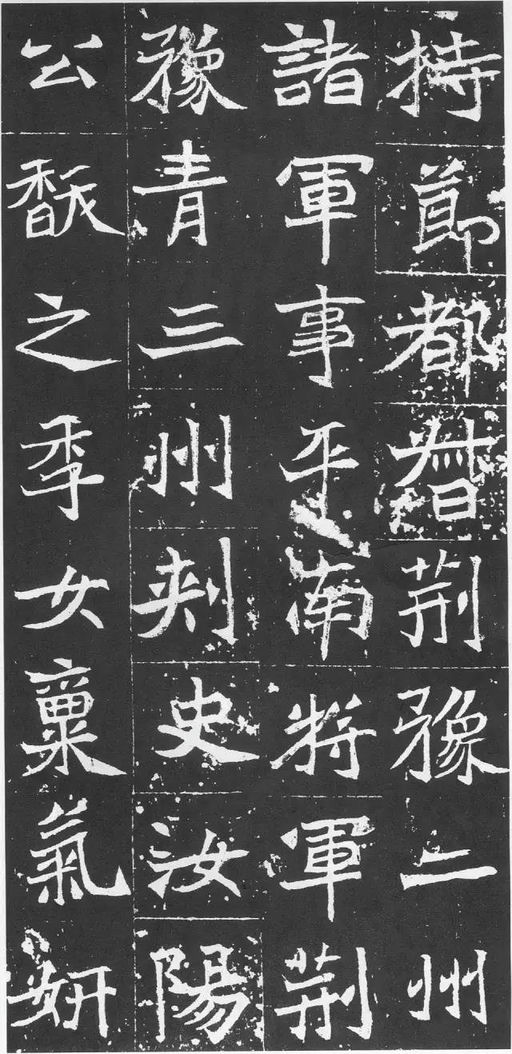 持莭都督荆豫二州
諸軍事平南將軍荆
豫青三州刾史汝陽
公馛之季女稟氣妍